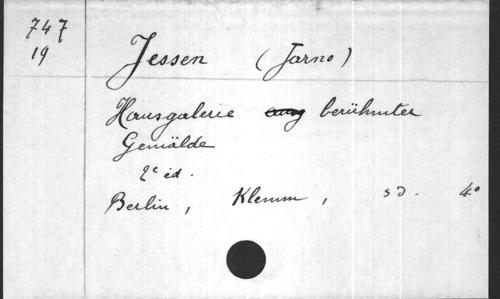 747
19
Jessen (Jarno)
Hausgalerie berühmter
Gemälde
2e éd.
Berlin, Klemm, s d. 4°